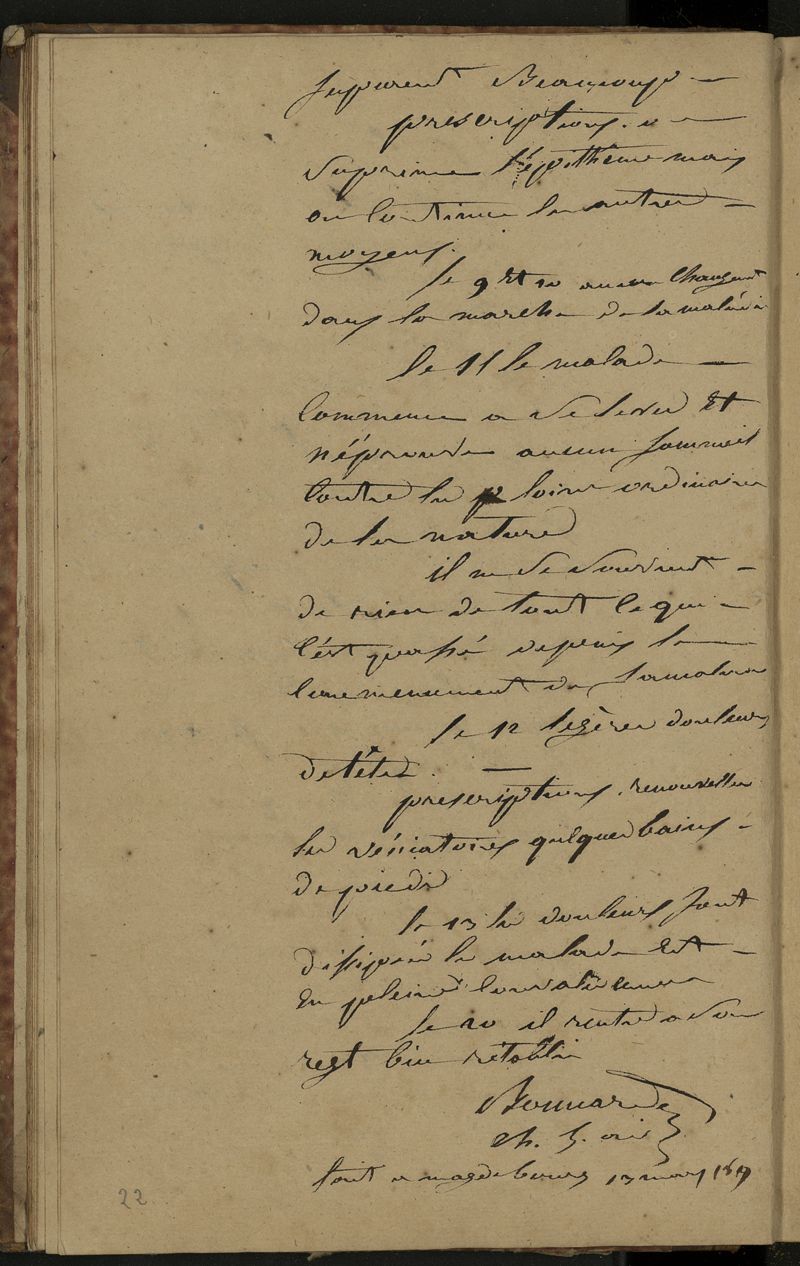 supurent Beaucoup —
prescriptions. on —
suprime l'épithême mais
on continue les autres —
moyens.
le 9 et 10 aucun changent
dans la marche de la maladie
le 11 le malade —
commence a se lever et
n'éprouve aucun sommeil
contre les loix ordinaires
de la nature
il ne se souvient —
de rien de tout ce qui —
c'est passé depuis le —
commencement de sa maladie
le 12 légères douleurs
de tête. —
prescriptions. renouveller
les vésicatoires quelques bains —
de pieds
le 13 les douleurs sont
dissipées le malade est —
en pleine convalescence
le 20 il rentre a son
regt bien rétabli
Bonnarde
ch.
fait a magdebourg 13 mars
22